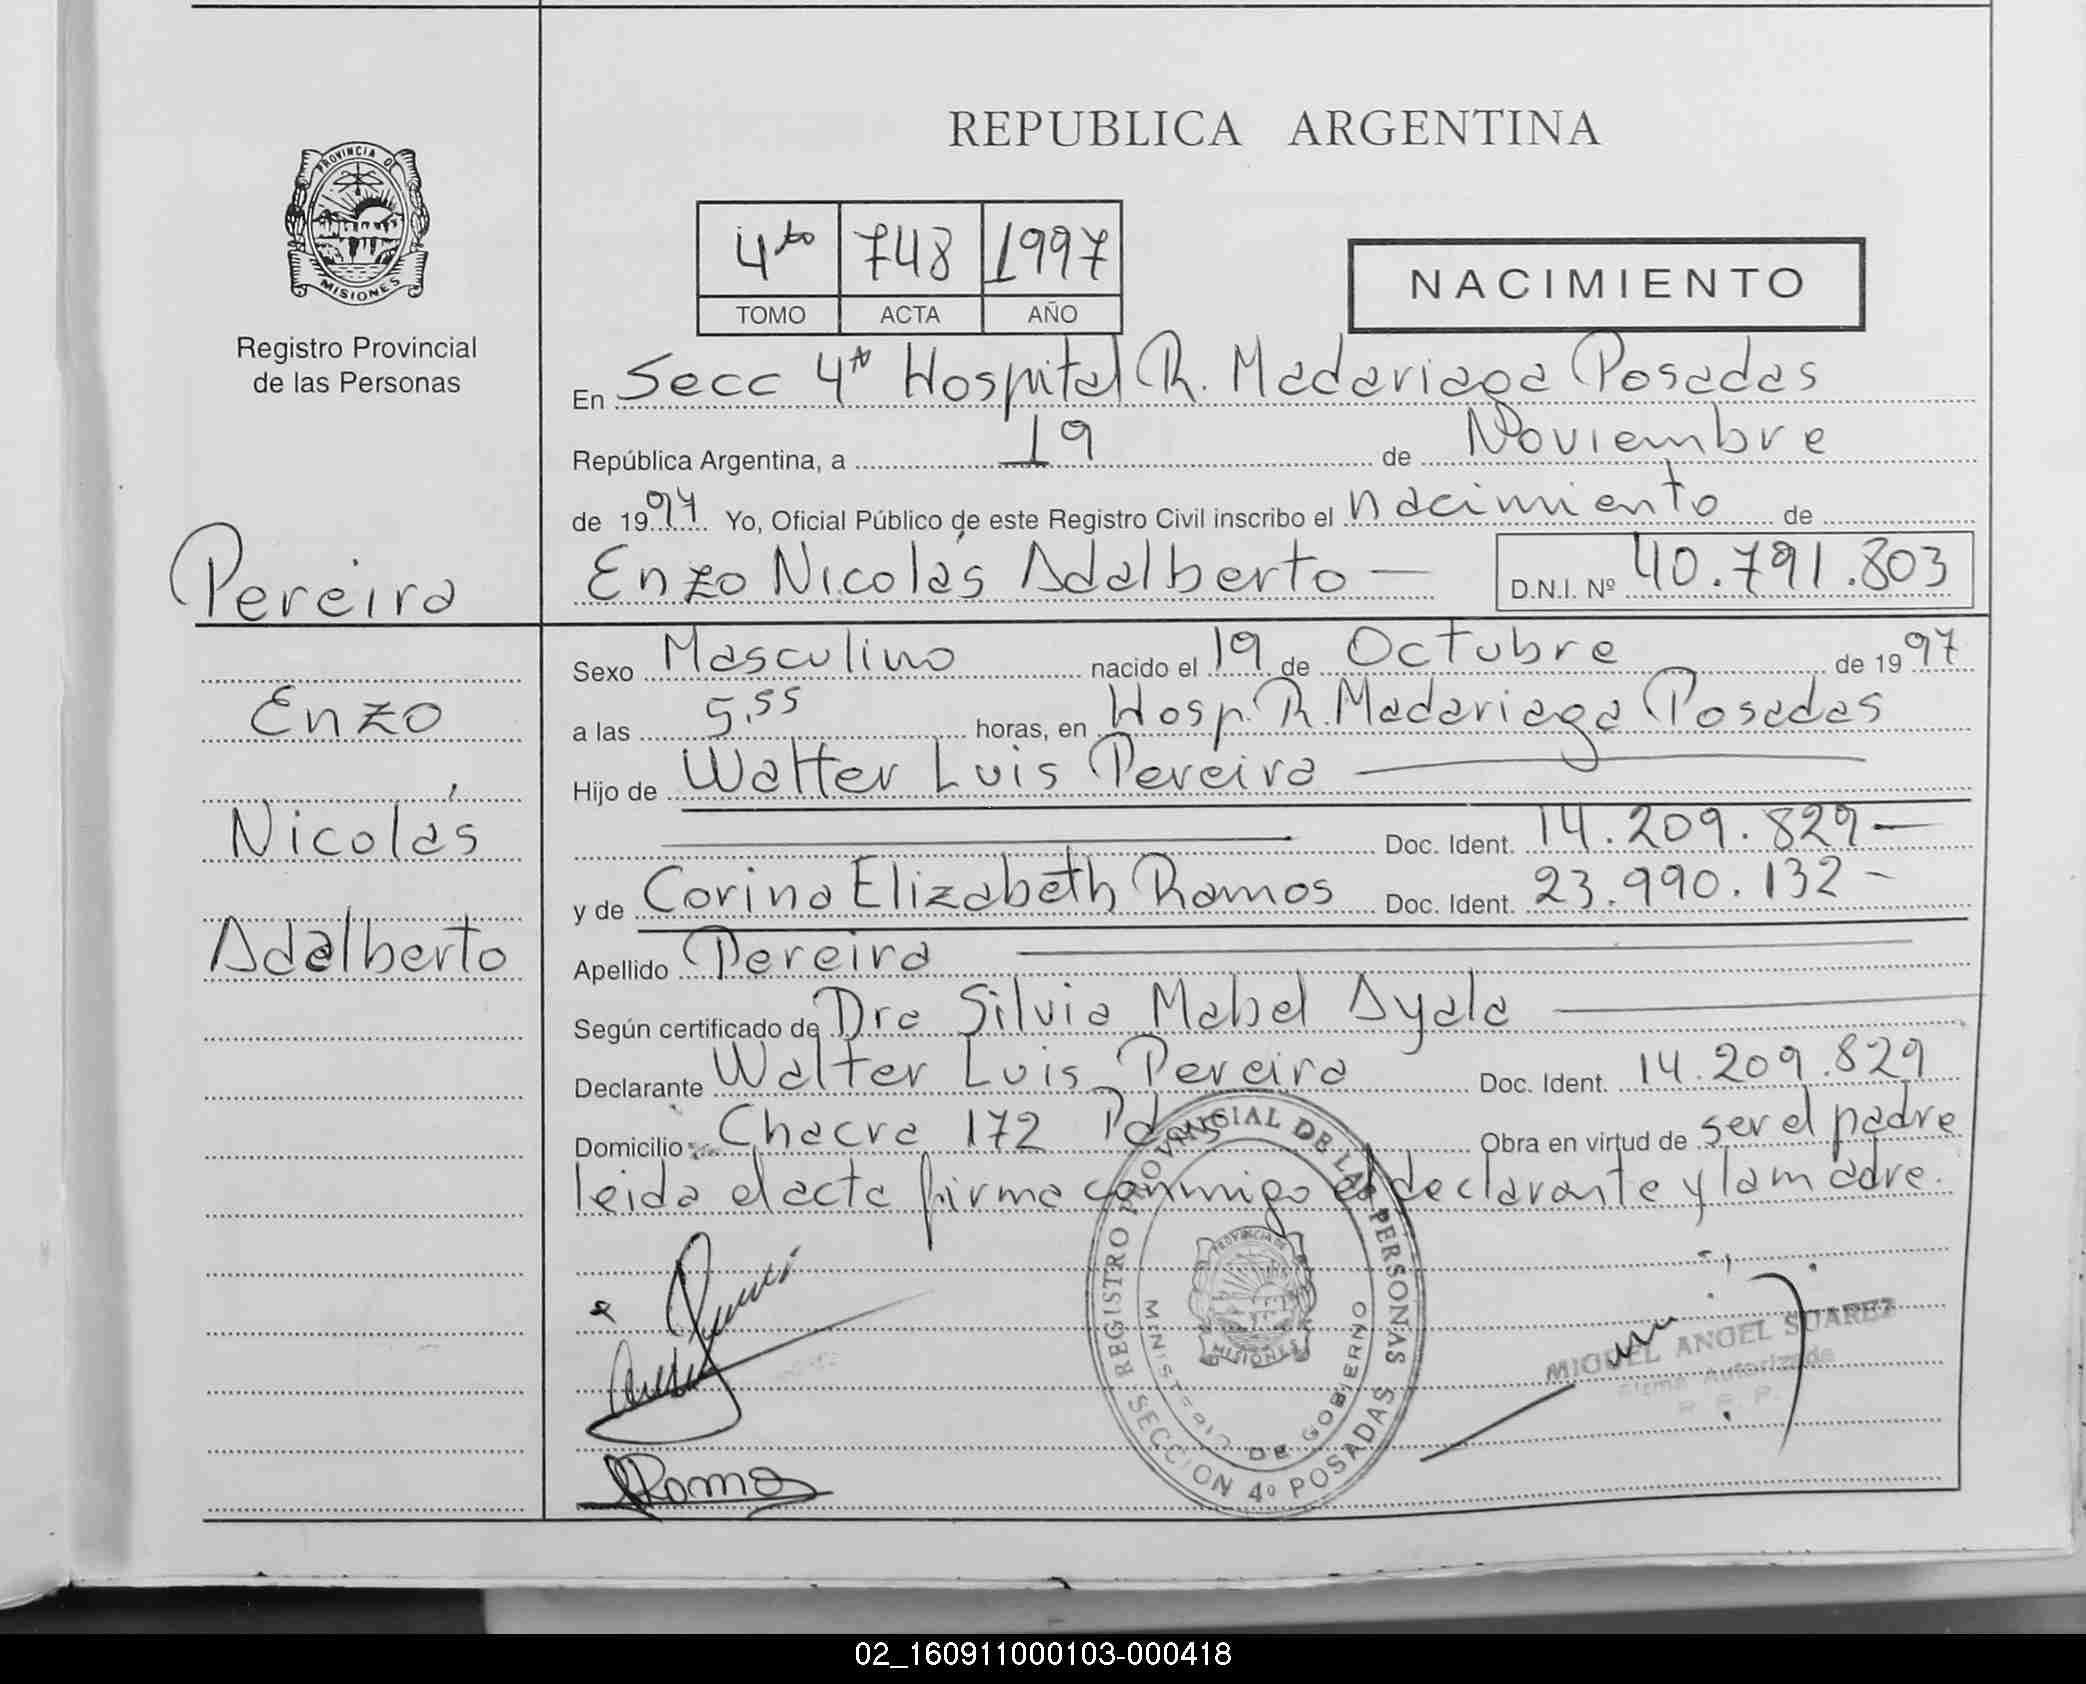 REPUBLICA ARGENTINA
PROVINCIA DE
MISIONES
Registro Provincial
de las Personas
4to 748 1997
TOMO ACTA AÑO
NACIMIENTO
En Secc 4ta Hospital R. Madariaga Posadas
República Argentina, a 19 de Noviembre
de 1997 Yo, Oficial Público de este Registro Civil inscribo el nacimiento de
Enzo Nicolás Adalberto — D.N.I. Nº 40.791.803
Pereira
Enzo
Nicolás
Adalberto
Sexo Masculino nacido el 19 de Octubre de 1997
a las 5,55 horas, en Hosp. R. Madariaga Posadas
Hijo de Walter Luis Pereira
Doc. Ident. 14.209.829-
y de Corina Elizabeth Ramos Doc. Ident. 23.990.132-
Apellido Pereira
Según certificado de Dra Silvia Mabel Ayala
Declarante Walter Luis Pereira Doc. Ident. 14.209.829
Domicilio Chacra 172 Pdas Obra en virtud de ser el padre
leida el acta firma conmigo el declarante y la madre.
REGISTRO PROVINCIAL DE LAS PERSONAS
MINISTERIO DE GOBIERNO
PROVINCIA DE
MISIONES
SECCION 4º POSADAS
MIGUEL ANGEL SUAREZ
Firma Autorizada
R. P. P.
Ramos
02_160911000103-000418